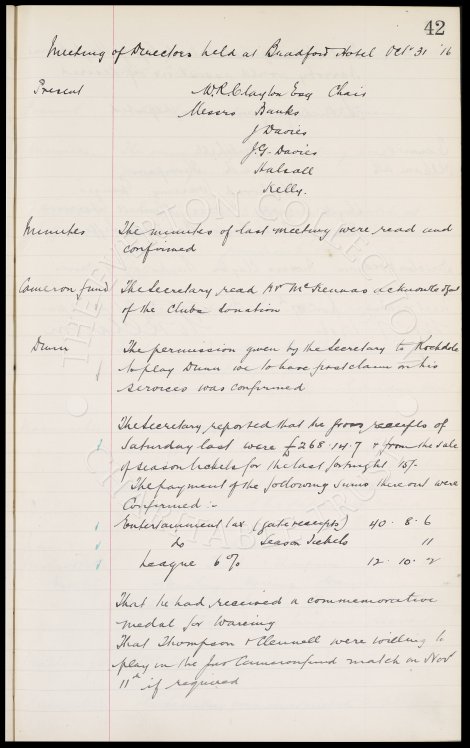 42
Meeting of Directors held at Bradford Hotel Octr 31 '16
Present W.R. Clayton Esq Chair
Messrs Banks
J Davies
J.G. Davies
Halsall
Kelly.
Minutes The minutes of last meeting were read and
confirmed
Cameron fund The Secretary read Mr McKennas acknowledgmt
of the Clubs donation
Dunn The permission given by the Secretary to Rochdale
to play Dunn we to have post claim on his
services was confirmed
The Secretary reported that the gross receipts of
Saturday last were £268.14.7 & from the sale
of season tickets for the last fortnight 15/-
The payment of the following sums thereout were
confirmed :-
Entertainment tax (gate receipts) 40. 8. 6
do Season Tickets 11
League 6% 12. 10. 2
That he had received a commemorative
medal for Wareing
That Thompson & Clennell were willing to
play in the Jno Cameron fund match on Novr
11th if required
THE EVERTON COLLECTION
CHARITABLE TRUST